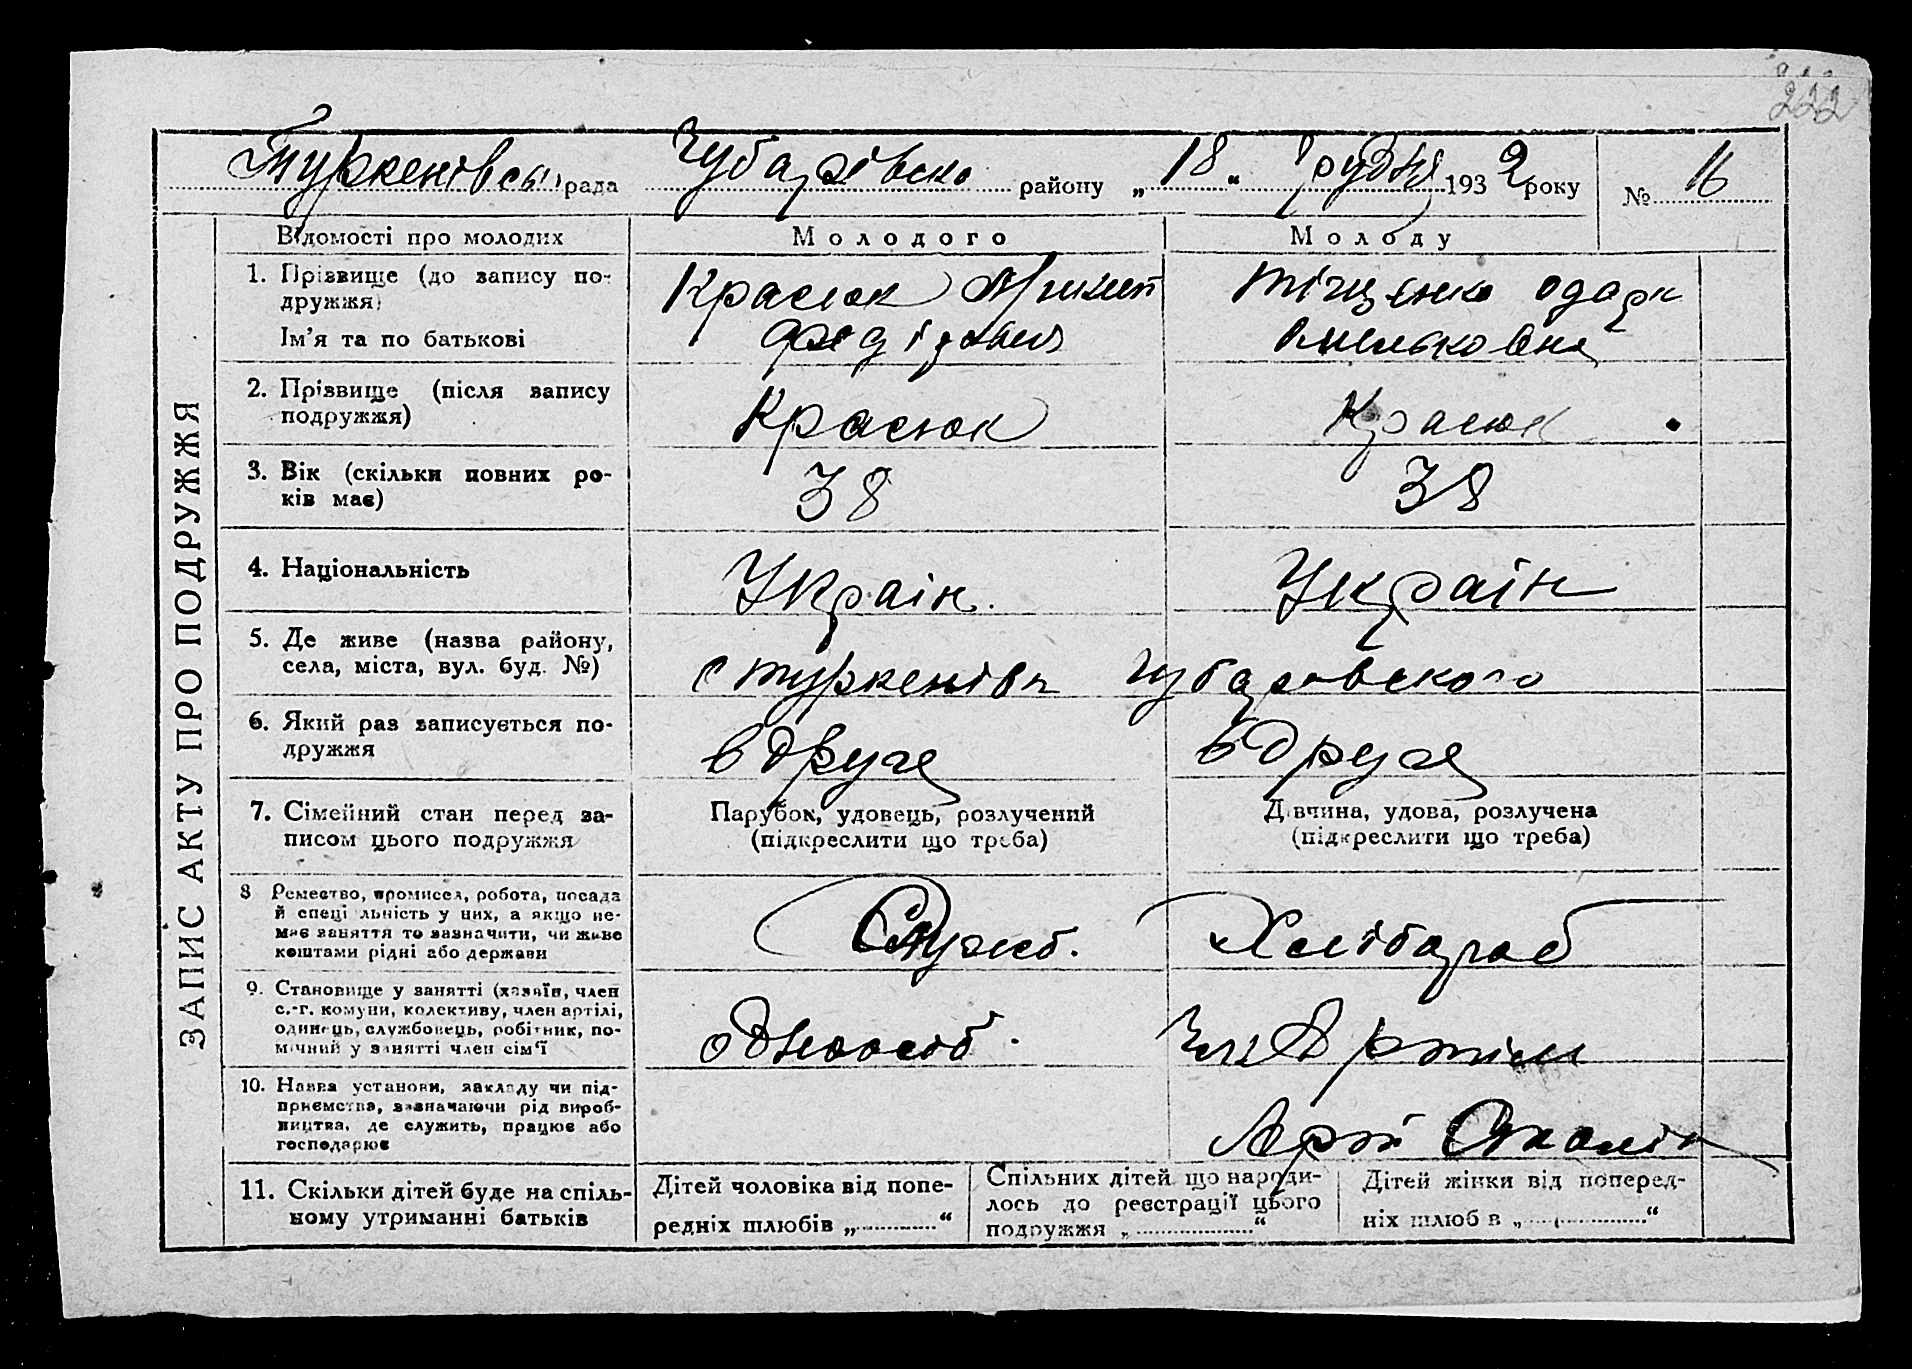 222
Туркенівськ рада Чубарівсько району „18“ грудня 1932 року № 16
ЗАПИС АКТУ ПРО ПОДРУЖЖЯ
Відомості про молодих Молодого Молоду
1. Прізвище (до запису по-
дружжя)
Ім'я та по батькові
Красюк
Тіщенко Одарк
2. Прізвище (після запису
подружжя)
Красюк Красюк
3. Вік (скільки повних ро-
ків має)
38 38
4. Національність
Україн. Україн
5. Де живе (назва району,
села, міста, вул. буд. №)
с Туркенівк Чубаровского
6. Який раз записується по-
дружжя
вдруге вдруге
7. Сімейний стан перед за-
писом цього подружжя
Парубок, удовець, розлучений
(підкреслити що треба)
Дівчина, удова, розлучена
(підкреслити що треба)
8 Ремество, промисел, робота, посада
й спеці льність у них, а якщо не-
має заняття то зазначити, чи живе
коштами рідні або держави
Служб. Хлібороб
9. Становище у занятті (хазяїн, член
с.-г. комуни, колективу, член артілі,
одинець, службовець, робітник, по-
мічний у занятті член сім'ї
одноосіб. Артіли
10. Назва установи, закладу чи під-
приємства, зазначаючи рід вироб-
ництва, де служить, працює або
господарює
Арт Сталін
11. Скільки дітей буде на спіль-
ному утриманні батьків
Дітей чоловіка від попе-
редніх шлюбів „............“
Спільних дітей що народи-
лось до реєстрації цього
подружжя „............“
Дітей жінки від поперед-
ніх шлюб в „............“